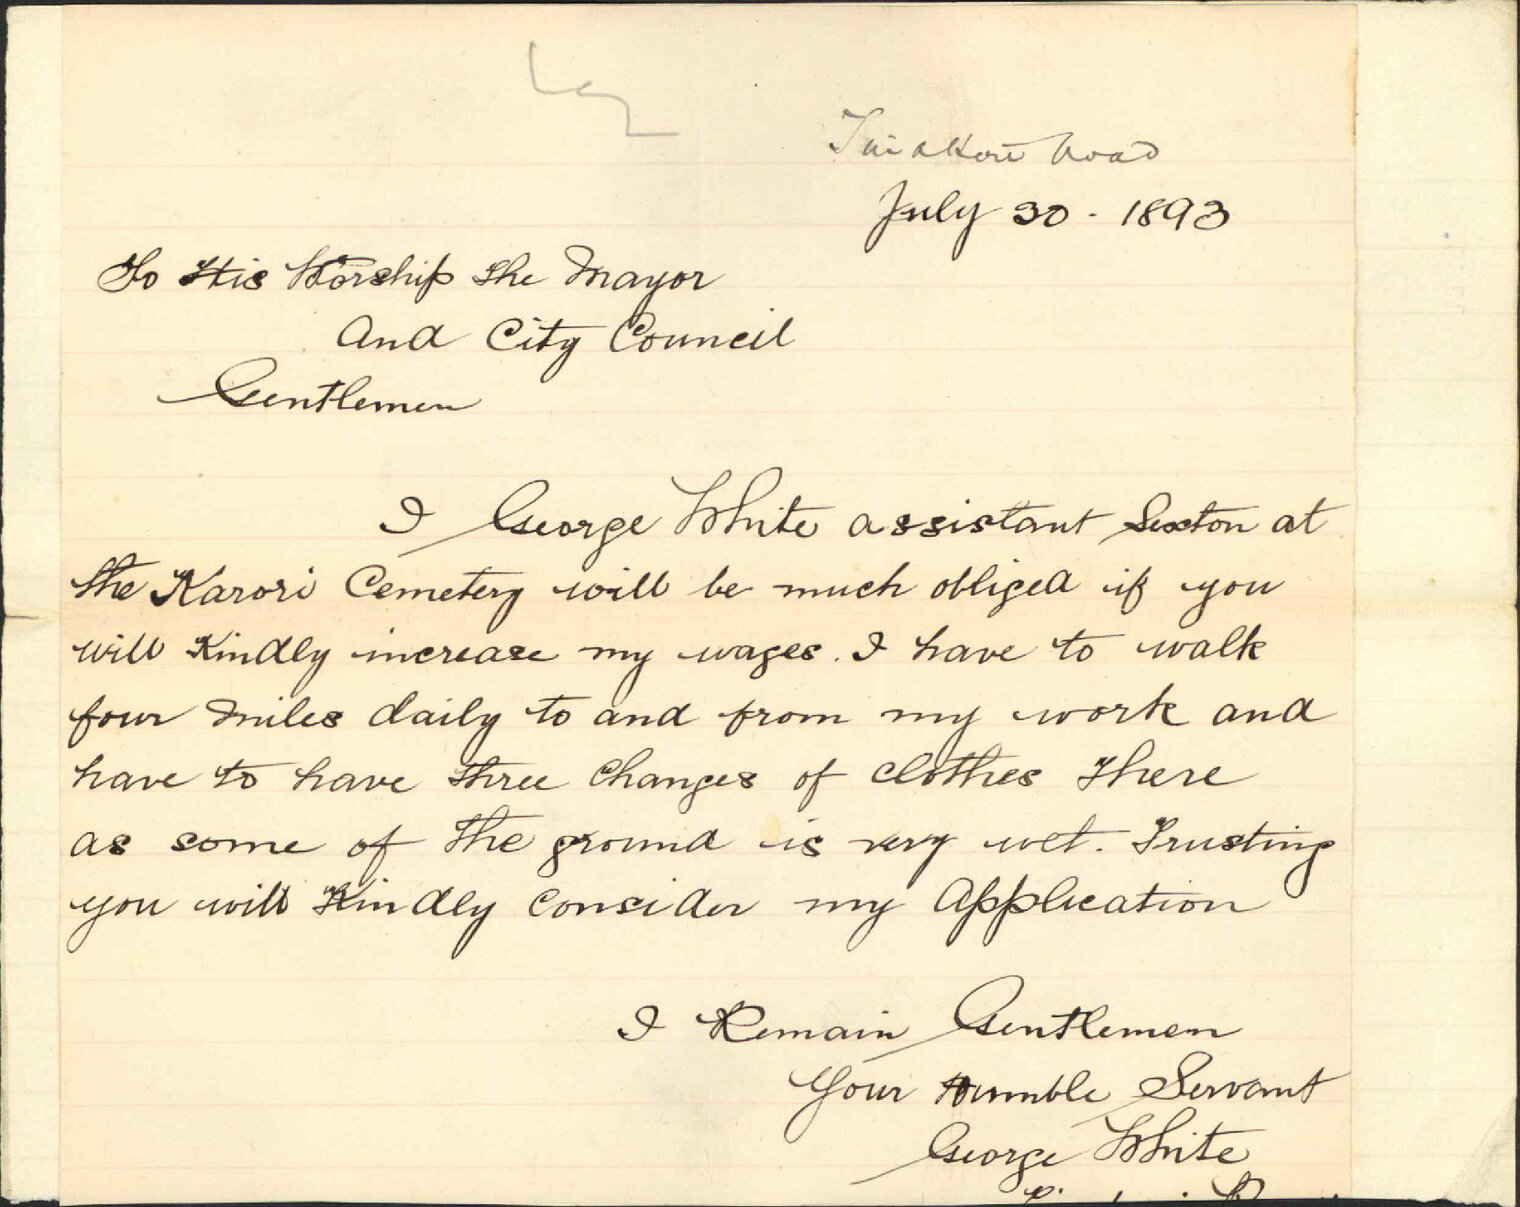 Tinakori Road
July 30 - 1893
To His Worship the Mayor
And City Council
Gentlemen
I George White assistant Sexton at
the Karori Cemetery will be much obliged if you
will Kindly increase my wages. I have to walk
four miles daily to and from my work and
have to have three Changes of Clothes there
as some of the ground is very wet. Trusting
you will Kindly Consider my Application
I Remain Gentlemen
Your Humble Servant
George White